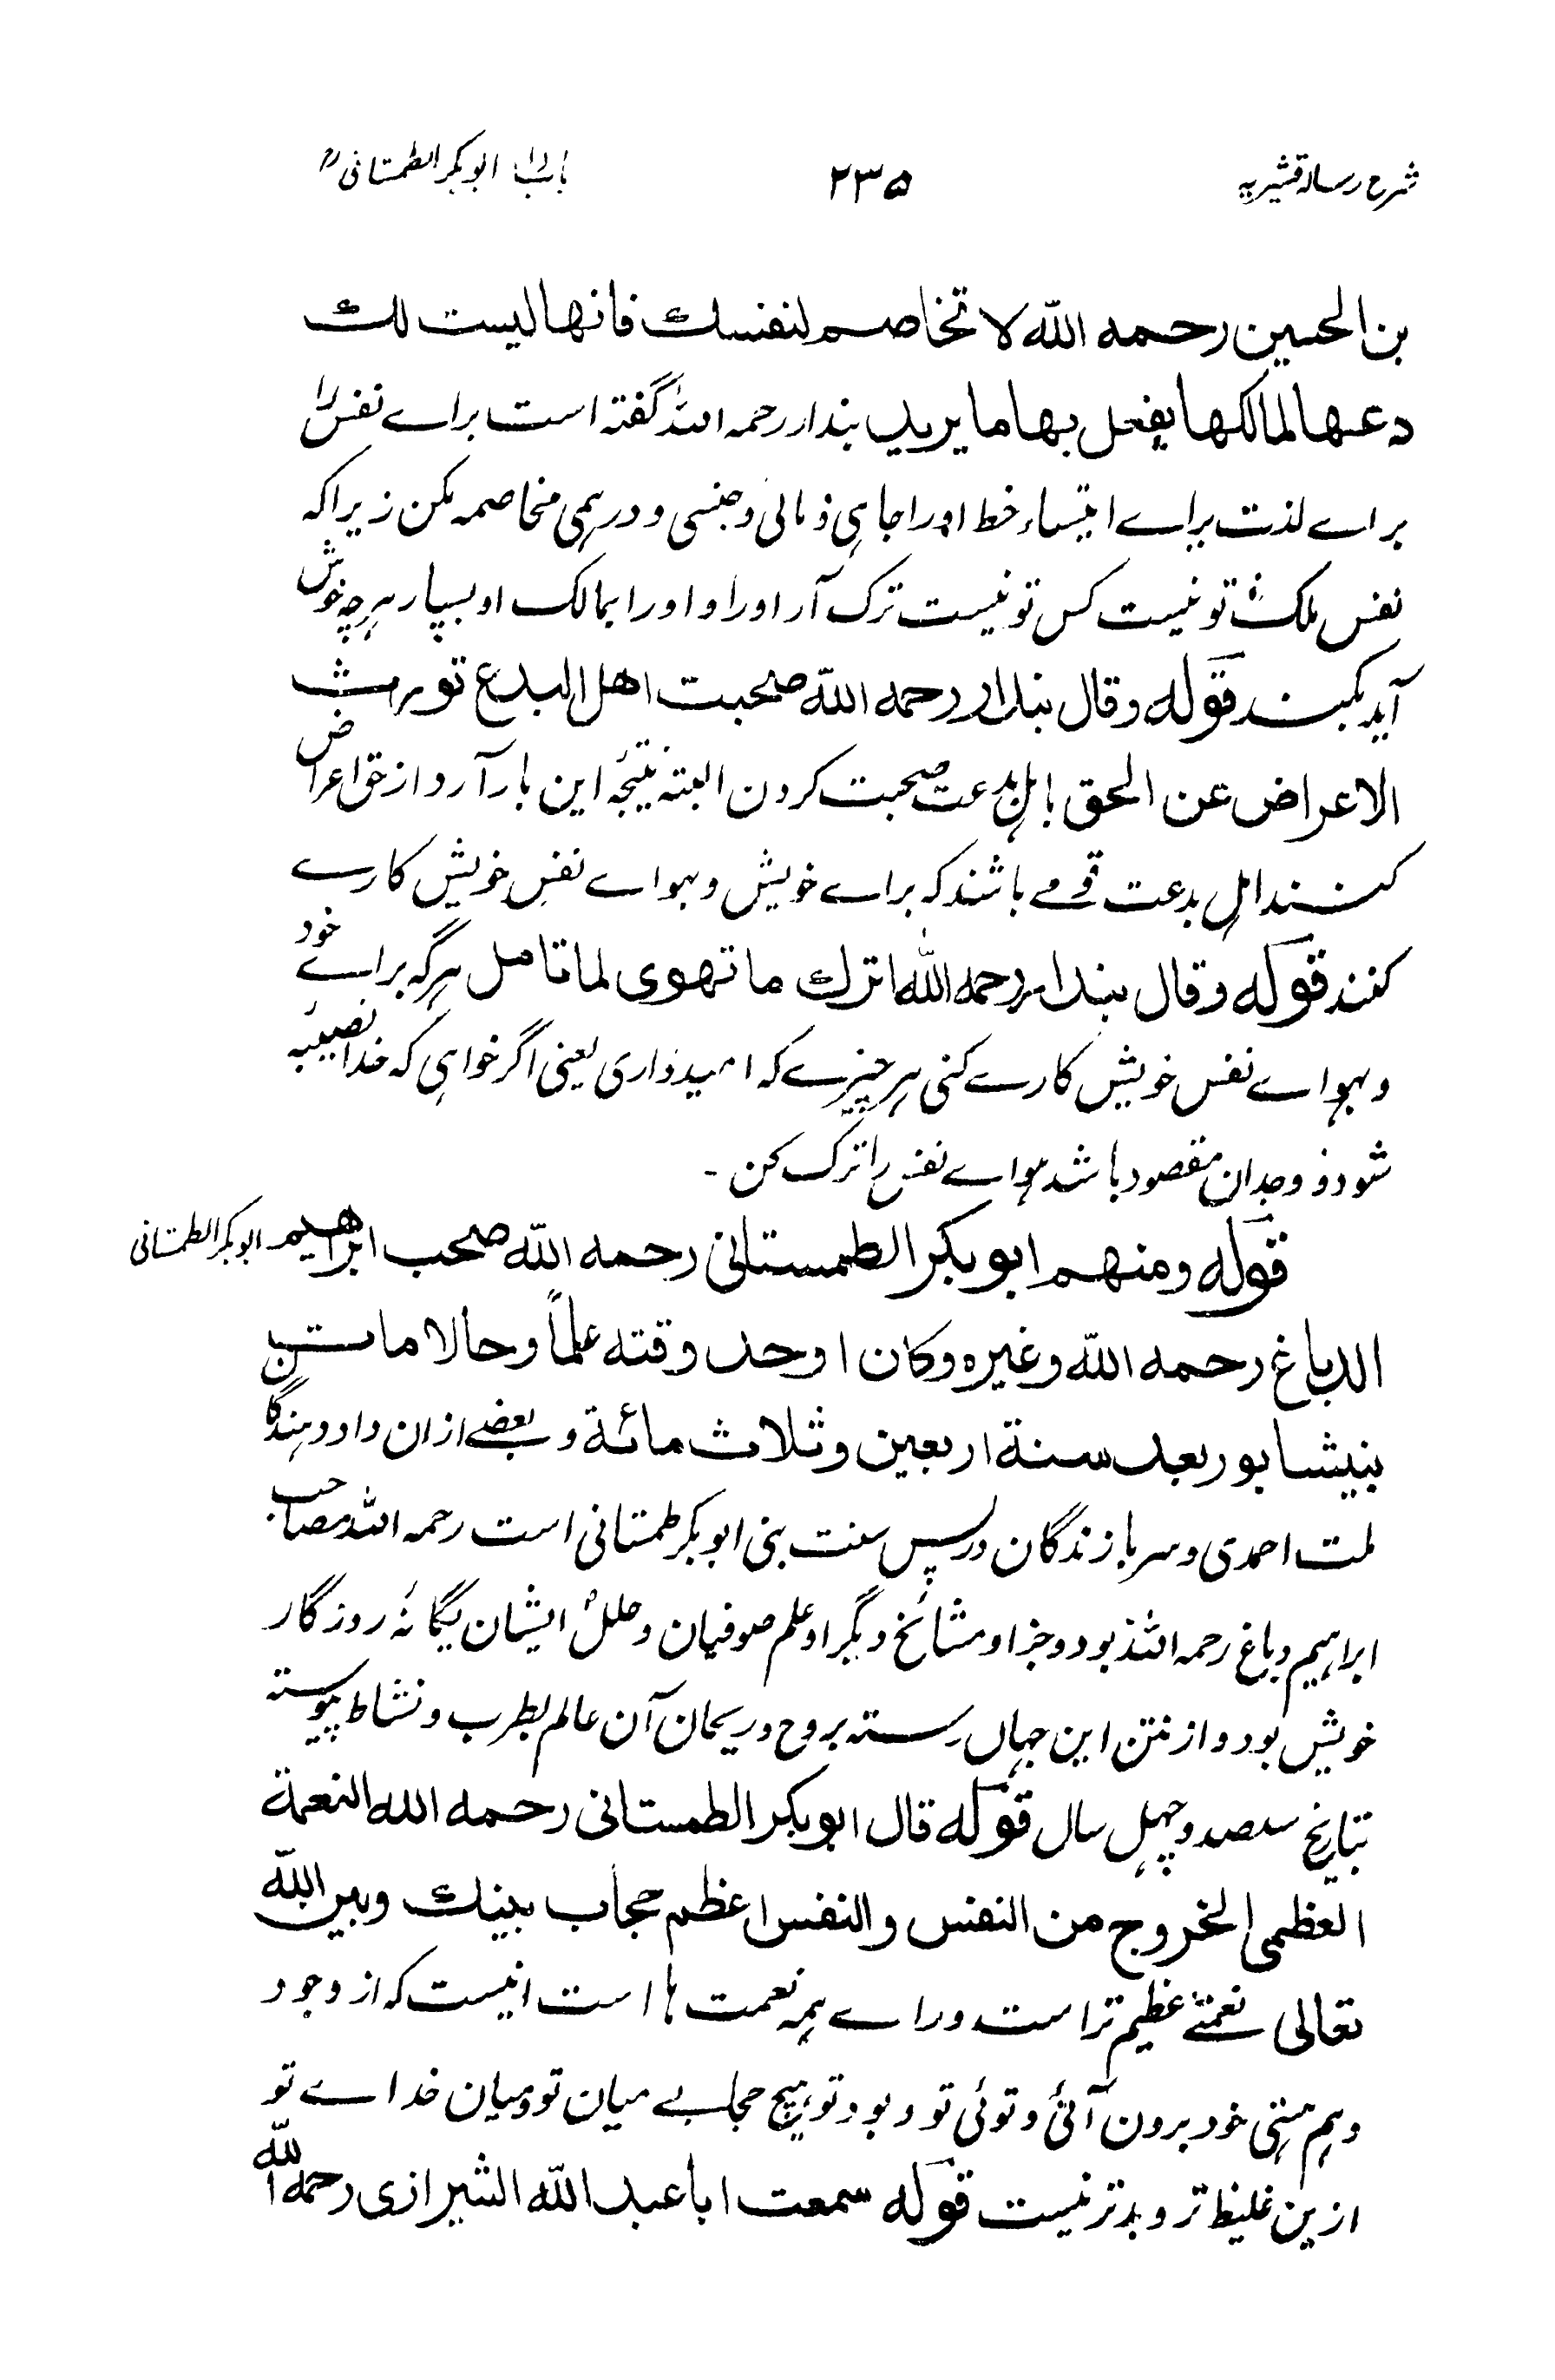 شرح رسالہ قشیریہ
۲۳۵
ابوبکر الطمستانی رح
بن الحسین رحمه اللّٰه لا تخاصم لنفسك فانها لیست لك
دعها لمالکها یفعل بها ما یرید بندار رحمہ اللہ گفتہ است براے نفس را
براے لذت براے خط اورا جاہی و مالی و جنسی و درہمی مخاصمہ مکن زیراکہ
نفس ملک تو نیست کس تو نیست ترک آر اورا و اورا بمالک او بسپار ہرچہ خوش
آید بکند قوله وقال بندار رحمه اللّٰه صحبت اهل البدع تورث
الاعراض عن الحق با اہل بدعت صحبت کردن البتہ نتیجہ این بار آرد از حق اعراض
کنند اہل بدعت قومے باشند کہ براے خویش و ہواے نفس خویش کارے
کنند قوله وقال بندار رحمه اللّٰه اترك ما تهوی لما تامل ہرگہ براے خود
و ہواے نفس خویش کارے کنی ہر چیزے کہ امیدداری یعنی اگر خواہی کہ خدا نصیبہ
شود و وجدان مقصود باشد ہواے نفس را ترک کن ۔
قوله ومنهم ابو بکر الطمستانی رحمه اللّٰه صحب ابراهیم
ابوبکر الطمستانی
الدباغ رحمه اللّٰه وغیره وکان اوحد وقته علماً وحالا مات
بنیشابور بعد سنة اربعین وثلاث مائة و بعضے ازان
ملت احمدی و سربازندگان درپس سنت بنی ابوبکر طمستانی است رحمہ اللہ مصاحب
ابراہیم دباغ رحمہ اللہ بود و جز او مشائخ دیگر او علم صوفیان و ایشان یگانۂ روزگار
خویش بود و از نتن این جہاں رستہ بروح و ریحان آن عالم بطرب و نشاط پیوستہ
بتاریخ سصد و چہل سال قوله قال ابوبکر الطمستانی رحمه الله النعمة
العظمی الخروج من النفس والنفس اعظم حجاب بینك وبین اللّٰه
تعالی نعمتے عظیم تراست وراے ہمہ نعمت ہا است انیست کہ از وجود
و ہم ہستی خود برون آئی و توئی تو و بود تو ہیچ حجابے میان تو و میان خداے تو
ازین غلیظ تر و بدتر نیست قوله سمعت ابا عبد اللّٰه الشیرازی رحمه اللّٰه